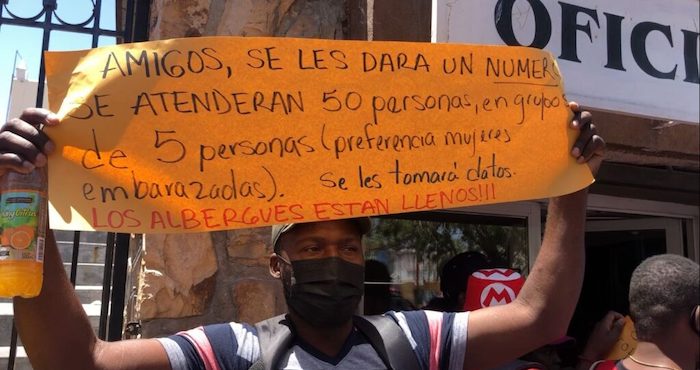 OFIC
AMIGOS, SE LES DARA UN NUMER
SE ATENDERAN 50 personas, en grupo
de 5 personas (preferencia mujeres
embarazadas). Se les tomará datos.
LOS ALBERGUES ESTAN LLENOS!!!
M